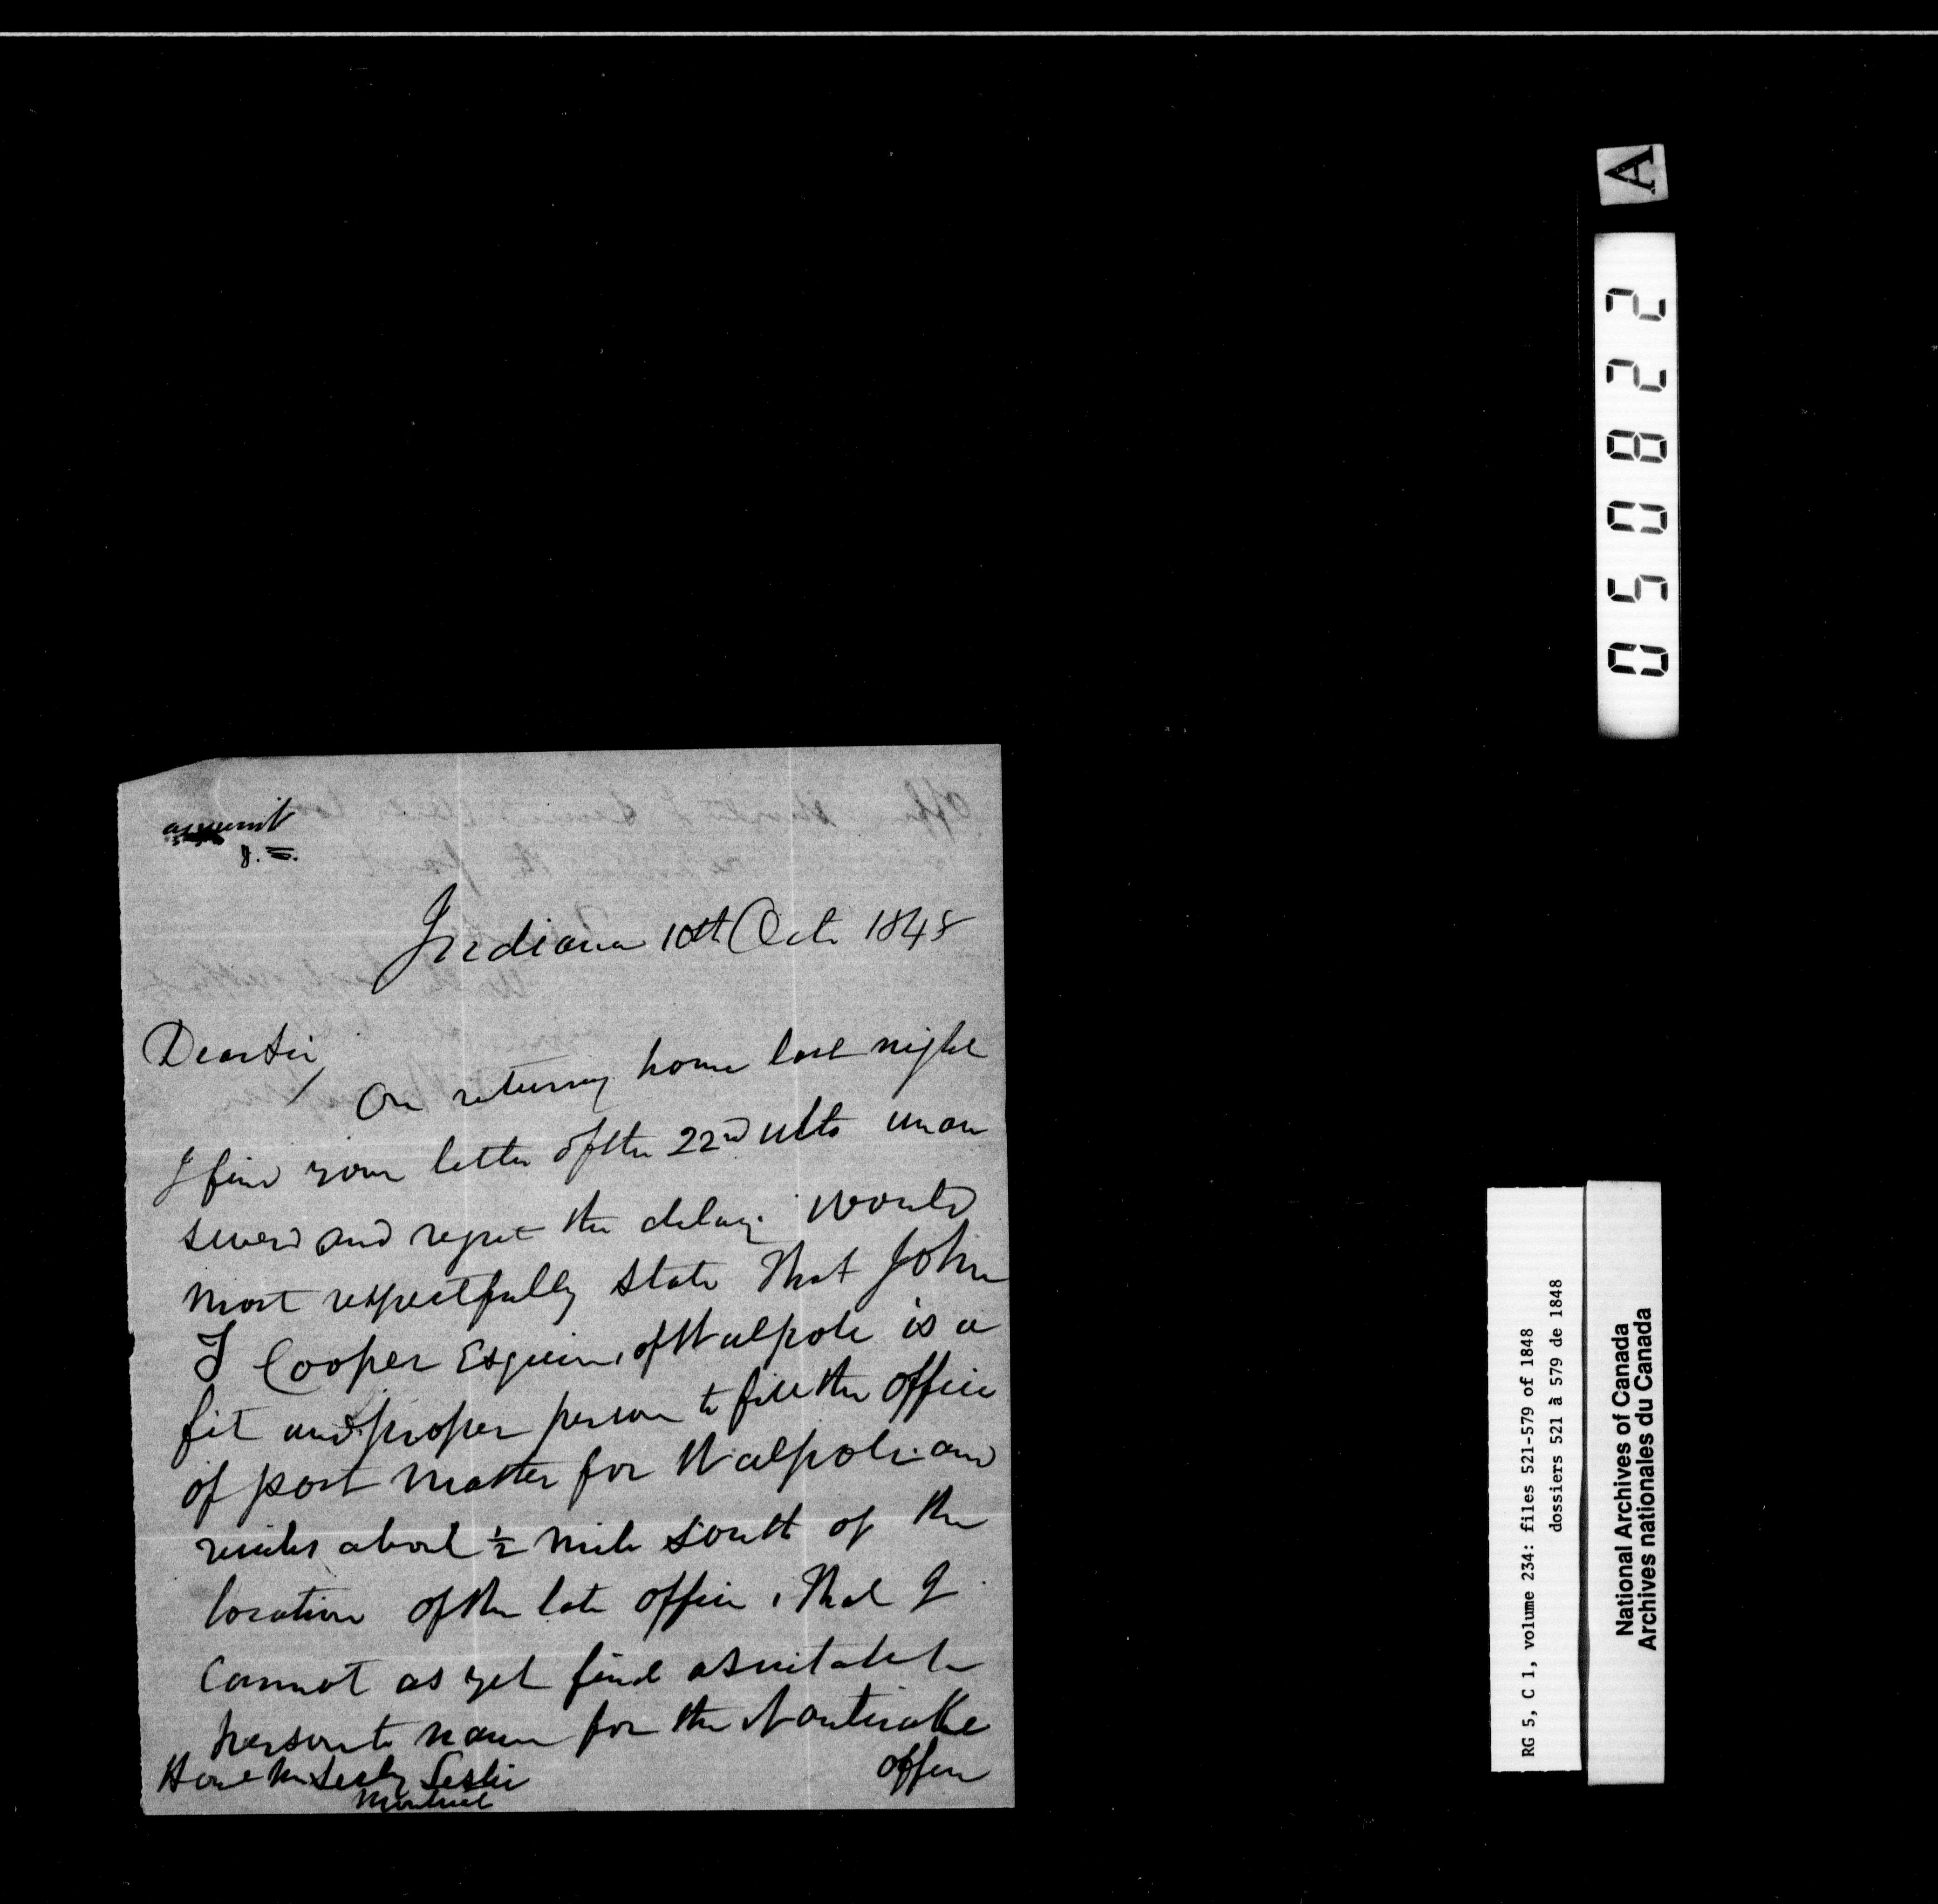 A
050822
J. S.
Indiana 10th Oct. 1848
Dear Sir,
On returning home last night
I find your letter of the 22nd ulto unan
swered and regret the delay. Would
most respectfully state that John
T Cooper Esquire, of Walpole is a
fit and proper person to fill the office
of post master for Walpole and
resides about ½ mile south of the
location of the late office, that I
cannot as yet find a suitable
person to name for the Nanticoke
office
Honl Mr Secty Leslie
Montreal
RG 5, C 1, volume 234: files 521-579 of 1848
dossiers 521 à 579 de 1848
National Archives of Canada
Archives nationales du Canada